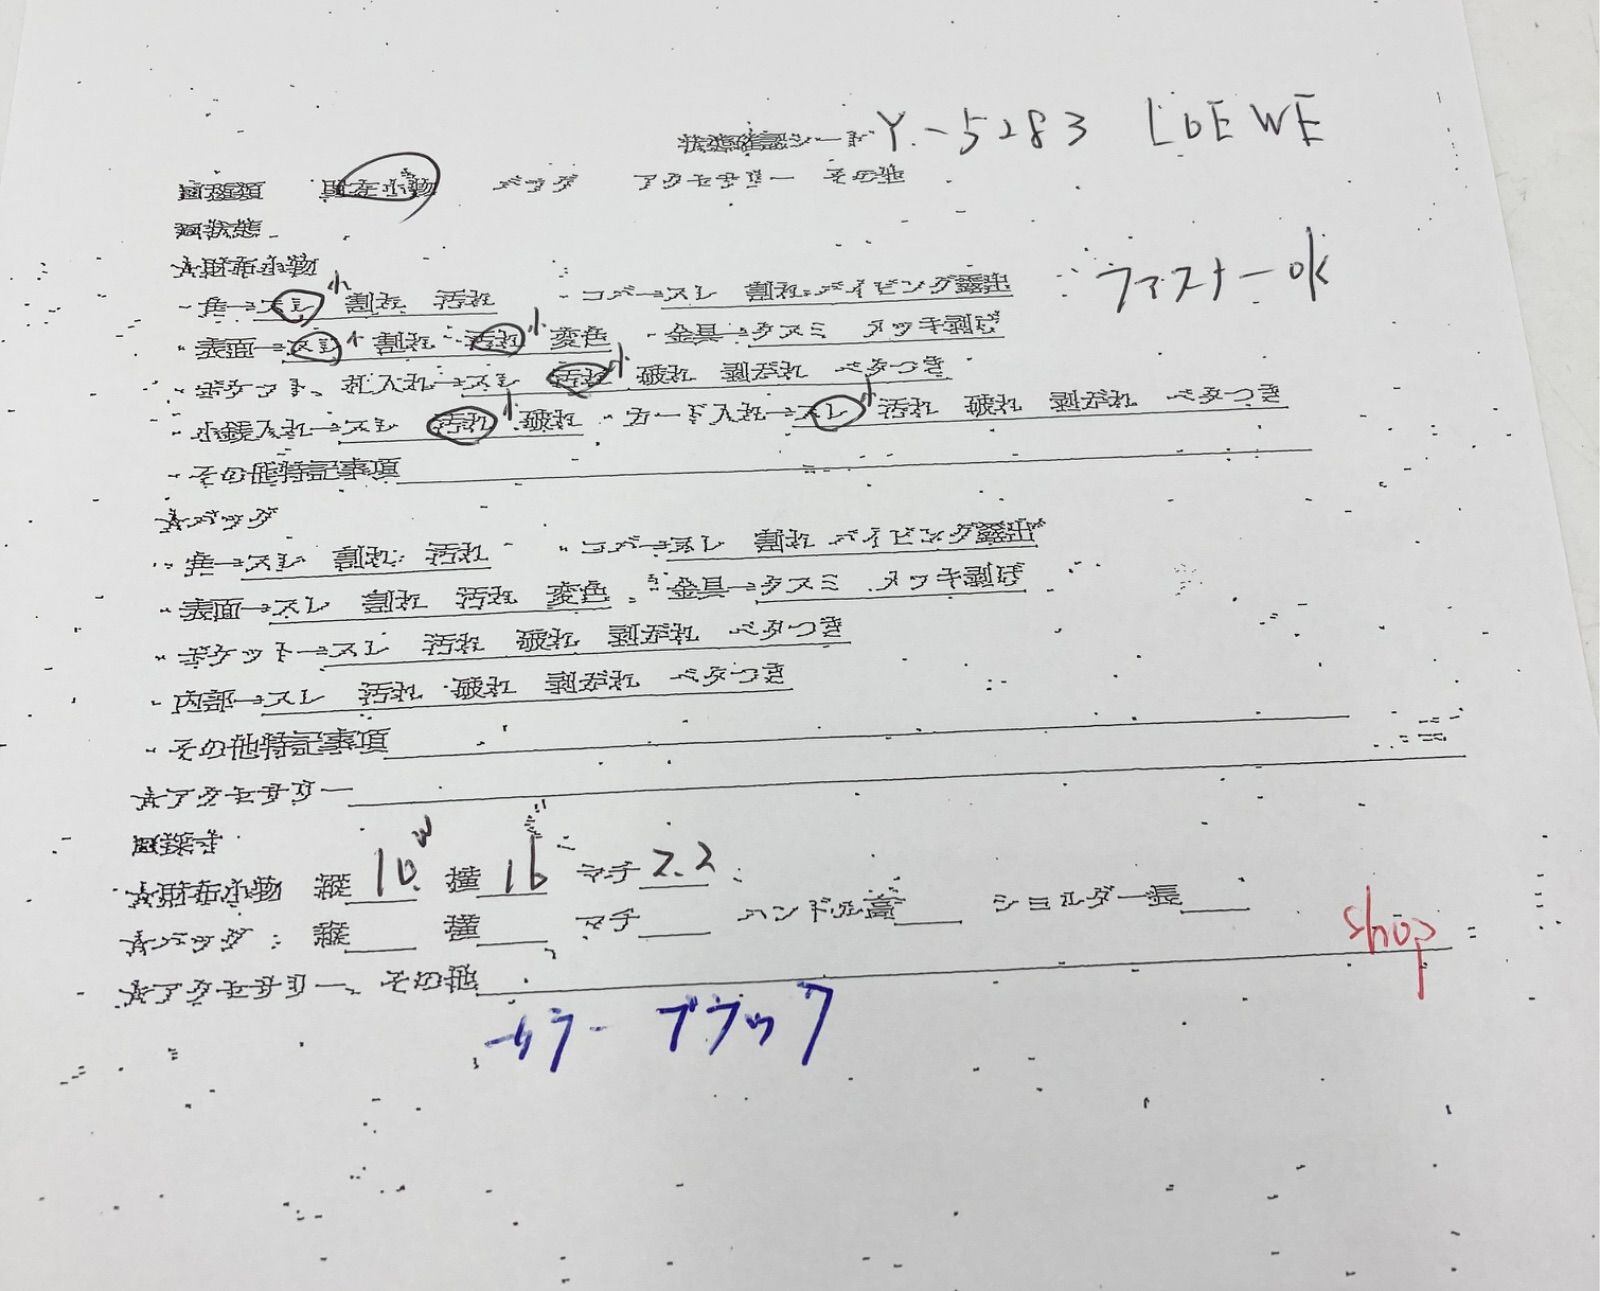 状態確認シート Y-5283 LOEWE
■種類 財布小物 バッグ アクセサリー その他
■状態
★財布小物
・角→スレ小 割れ 汚れ ・コバ→スレ 割れ パイピング露出 ファスナーOK
・表面→スレ小 割れ 汚れ小 変色 ・金具→クスミ メッキ剥げ
・ポケット、札入れ→スレ 汚れ小 破れ 剥がれ ベタつき
・小銭入れ→スレ 汚れ小 破れ ・カード入れ→スレ小 汚れ 破れ 剥がれ ベタつき
・その他特記事項
★バッグ
・角→スレ 割れ 汚れ ・コバ→スレ 割れ パイピング露出
・表面→スレ 割れ 汚れ 変色 ・金具→クスミ メッキ剥げ
・ポケット→スレ 汚れ 破れ 剥がれ ベタつき
・内部→スレ 汚れ 破れ 剥がれ ベタつき
・その他特記事項
★アクセサリー
■採寸
★財布小物 縦 10 横 16 マチ 2.2
★バッグ 縦 横 マチ ハンドル高 ショルダー長
★アクセサリー、その他 shop
カラー ブラック